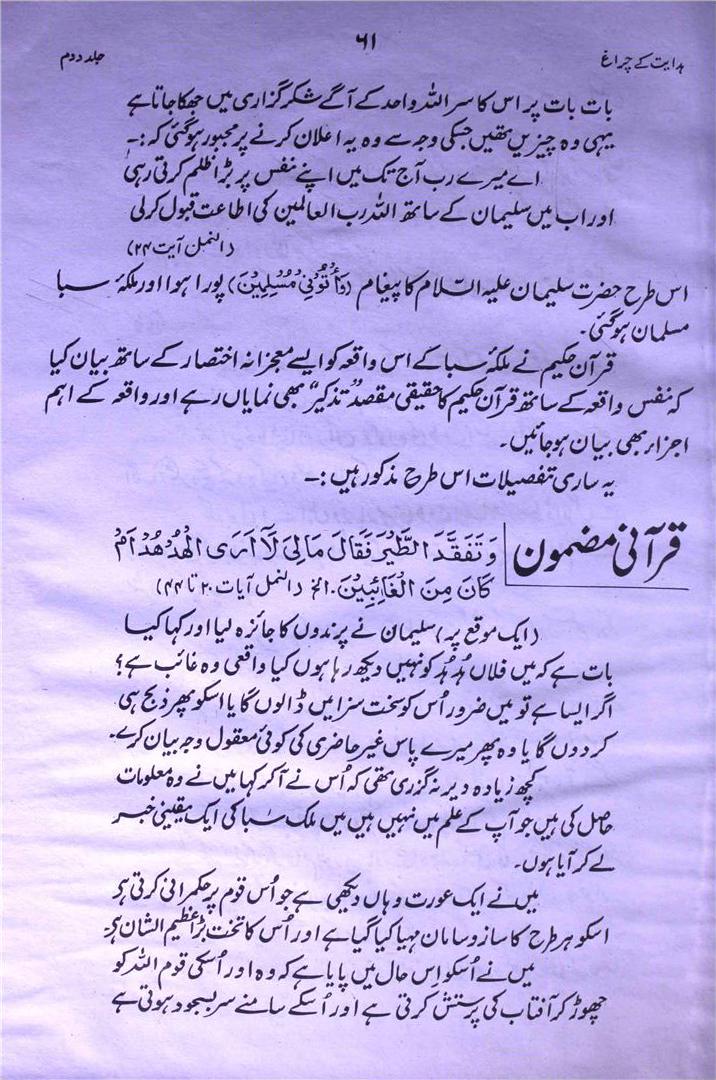 ہدایت کے چراغ
۶۱
جلد دوم
بات بات پر اس کا سر اللہ واحد کے آگے شکر گزاری میں جھکا جاتا ہے
یہی وہ چیزیں تھیں جسکی وجہ سے وہ یہ اعلان کرنے پر مجبور ہوگئی کہ :۔
اے میرے رب آج تک میں اپنے نفس پر بڑا ظلم کرتی رہی
اور اب میں سلیمان کے ساتھ اللہ رب العالمین کی اطاعت قبول کرلی
(النمل آیت ۲۴)
اس طرح حضرت سلیمان علیہ السّلام کا پیغام (وَأْتُوْنِیْ مُسْلِمِیْنَ) پورا ہوا اور ملکۂ سبا
مسلمان ہوگئی۔
قرآن حکیم نے ملکۂ سبا کے اس واقعہ کو ایسے معجزانہ اختصار کے ساتھ بیان کیا
کہ نفس واقعہ کے ساتھ قرآن حکیم کا حقیقی مقصد "تذکیر" بھی نمایاں رہے اور واقعہ کے اہم
اجزاء بھی بیان ہو جائیں۔
یہ ساری تفصیلات اس طرح مذکور ہیں :۔
قرآنی مضمون
وَتَفَقَّدَ الطَّیْرَ فَقَالَ مَالِیَ لَآ اَرَی الْھُدْھُدَ اَمْ
کَانَ مِنَ الْغَائِبِیْنَ۔ الخ (النمل آیات ۲۰ تا ۴۴)
(ایک موقع پر) سلیمان نے پرندوں کا جائزہ لیا اور کہا کیا
بات ہے کہ میں فلاں ہُدہُد کو نہیں دیکھ رہا ہوں کیا واقعی وہ غائب ہے؟
اگر ایسا ہے تو میں ضرور اُس کو سخت سزا میں ڈالوں گا یا اسکو پھر ذبح ہی
کردوں گا یا وہ پھر میرے پاس غیر حاضری کی کوئی معقول وجہ بیان کرے۔
کچھ زیادہ دیر نہ گزری تھی کہ اُس نے آکر کہا میں نے وہ معلومات
حاصل کی ہیں جو آپ کے علم میں نہیں ہیں میں ملک سَبا کی ایک یقینی خبر
لے کر آیا ہوں۔
میں نے ایک عورت وہاں دیکھی ہے جو اُس قوم پر حکمرانی کرتی ہے
اسکو ہر طرح کا ساز و سامان مہیا کیا گیا ہے اور اُس کا تخت بڑا عظیم الشان ہے۔
میں نے اُسکو اِس حال میں پایا ہے کہ وہ اور اُسکی قوم اللہ کو
چھوڑ کر آفتاب کی پرستش کرتی ہے اور اُسکے سامنے سربسجود ہوتی ہے